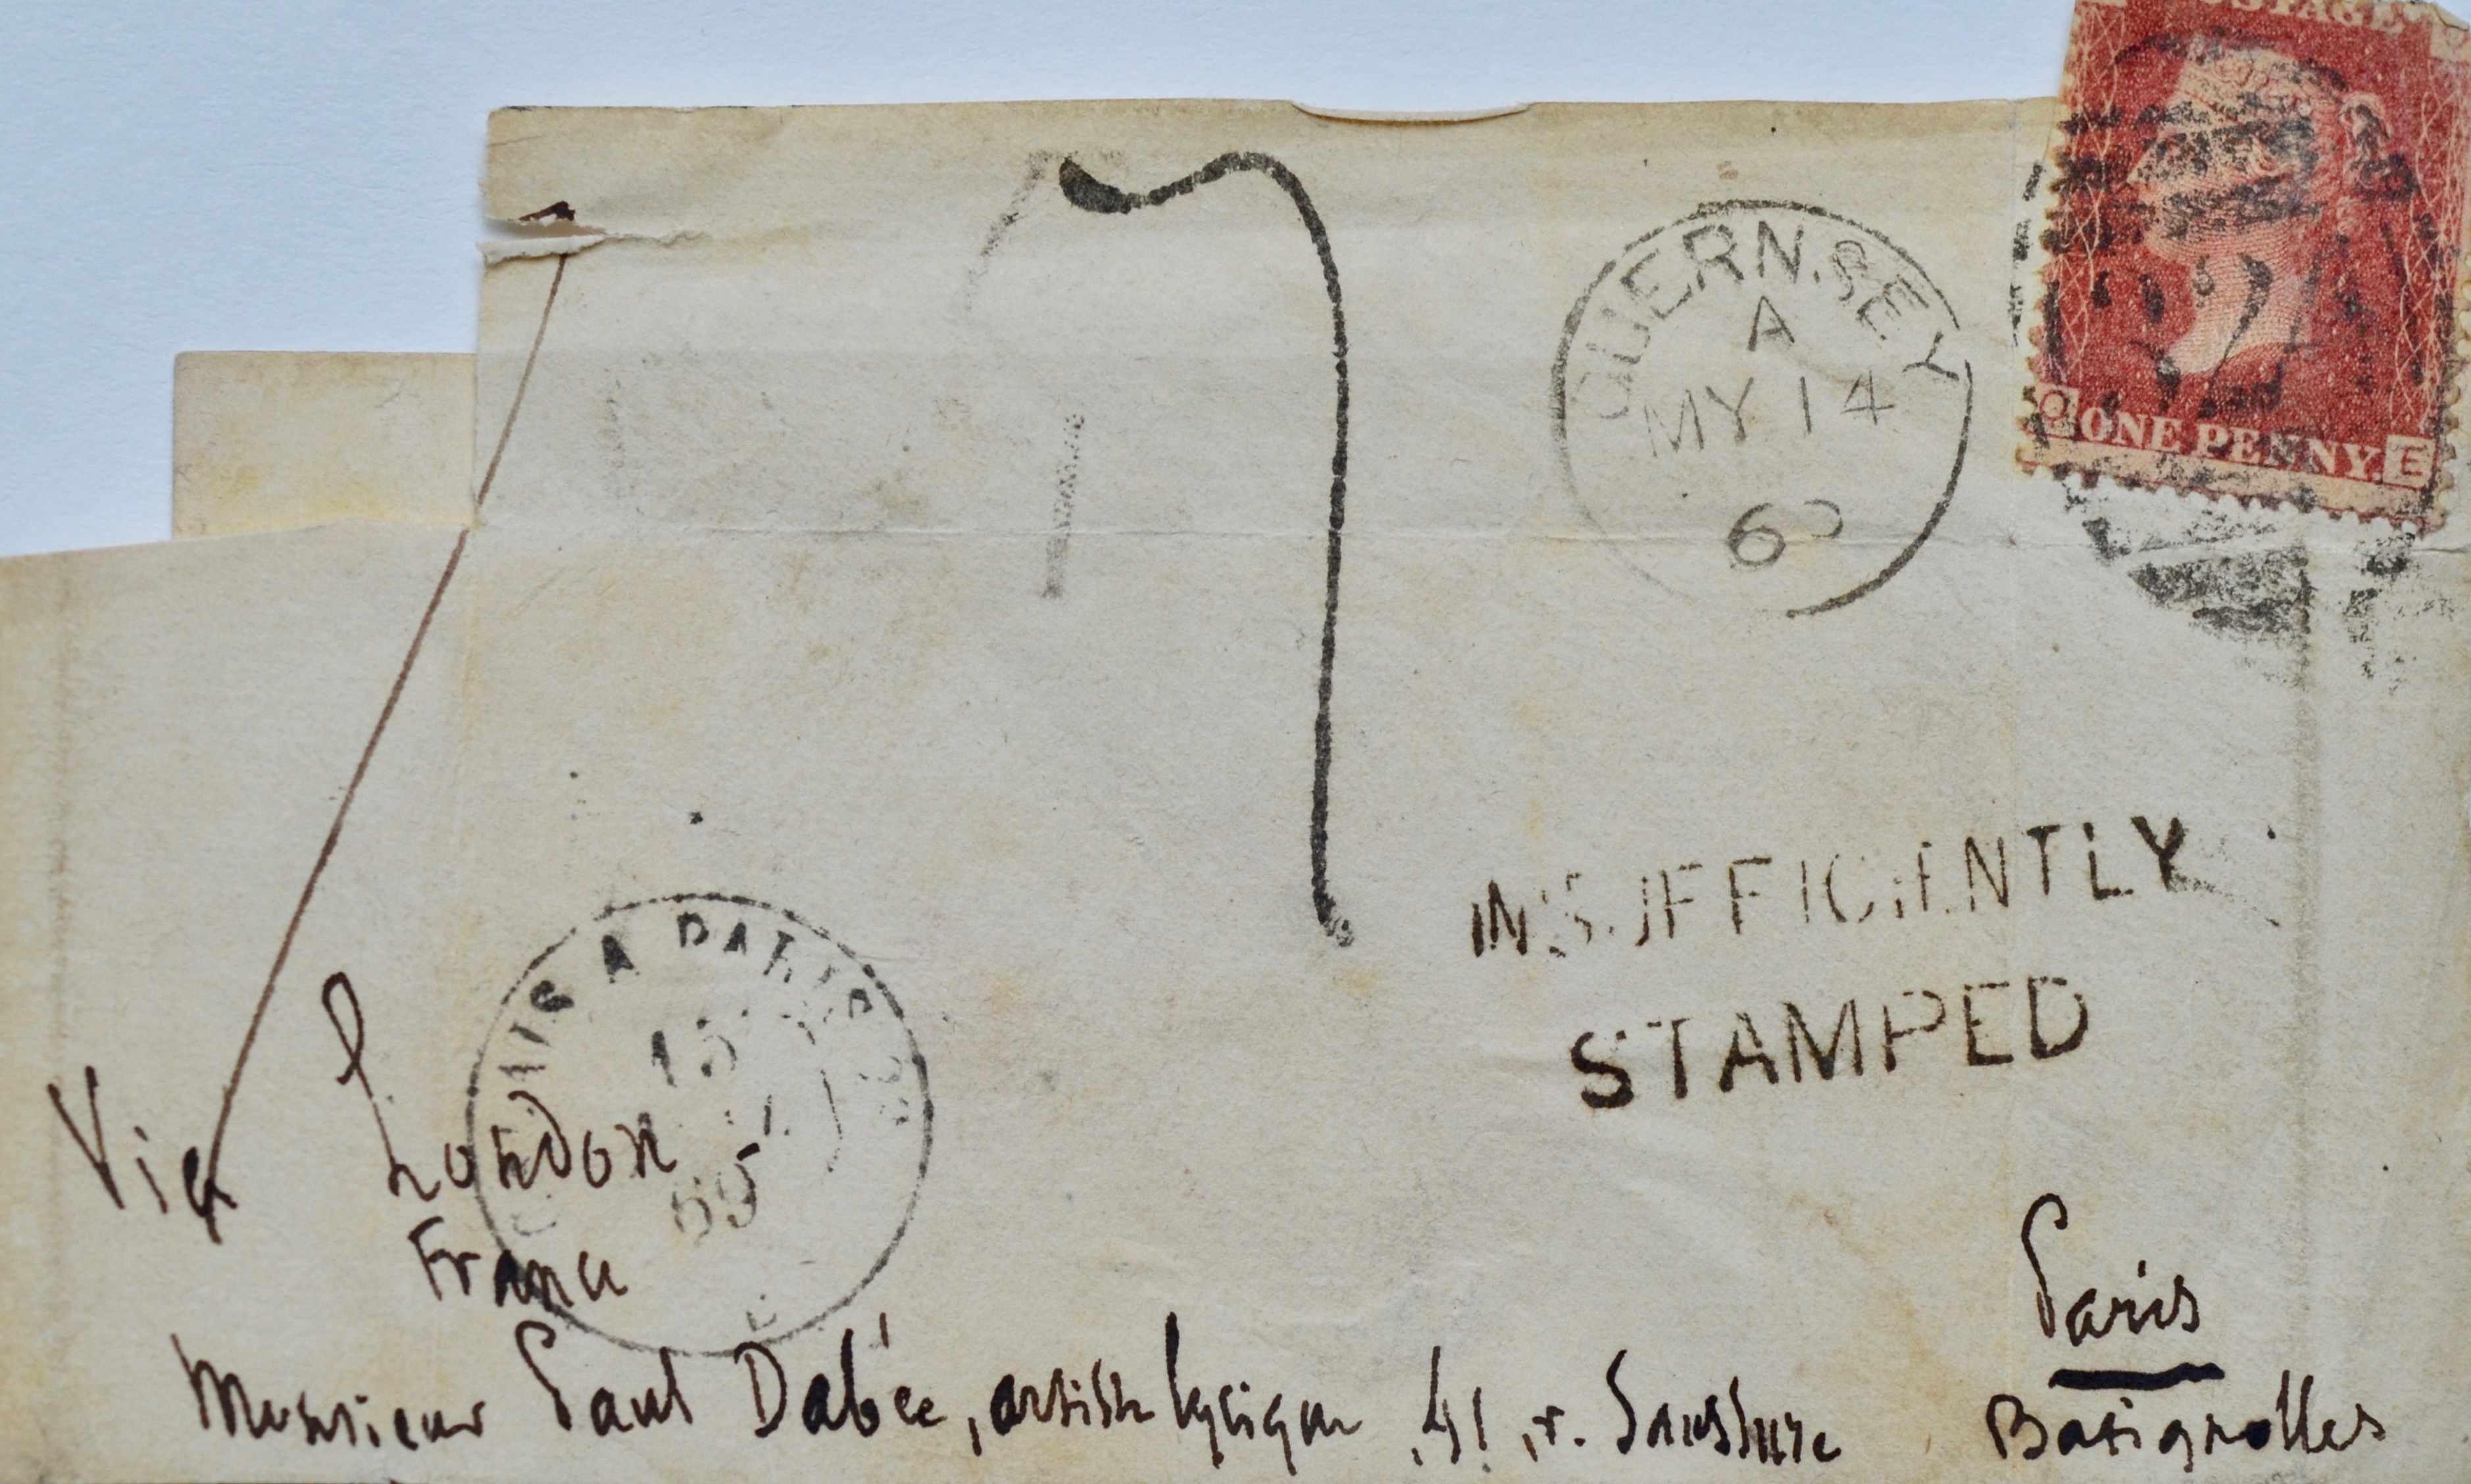 POSTAGE
ONE PENNY
E
GUERNSEY
A
MY 14
INSUFFICIENTLY
STAMPED
A PARIS
15
69
Via London
France
Paris
Monsieur Paul Dabée, artiste lyrique, r. Saussure
Batignolles